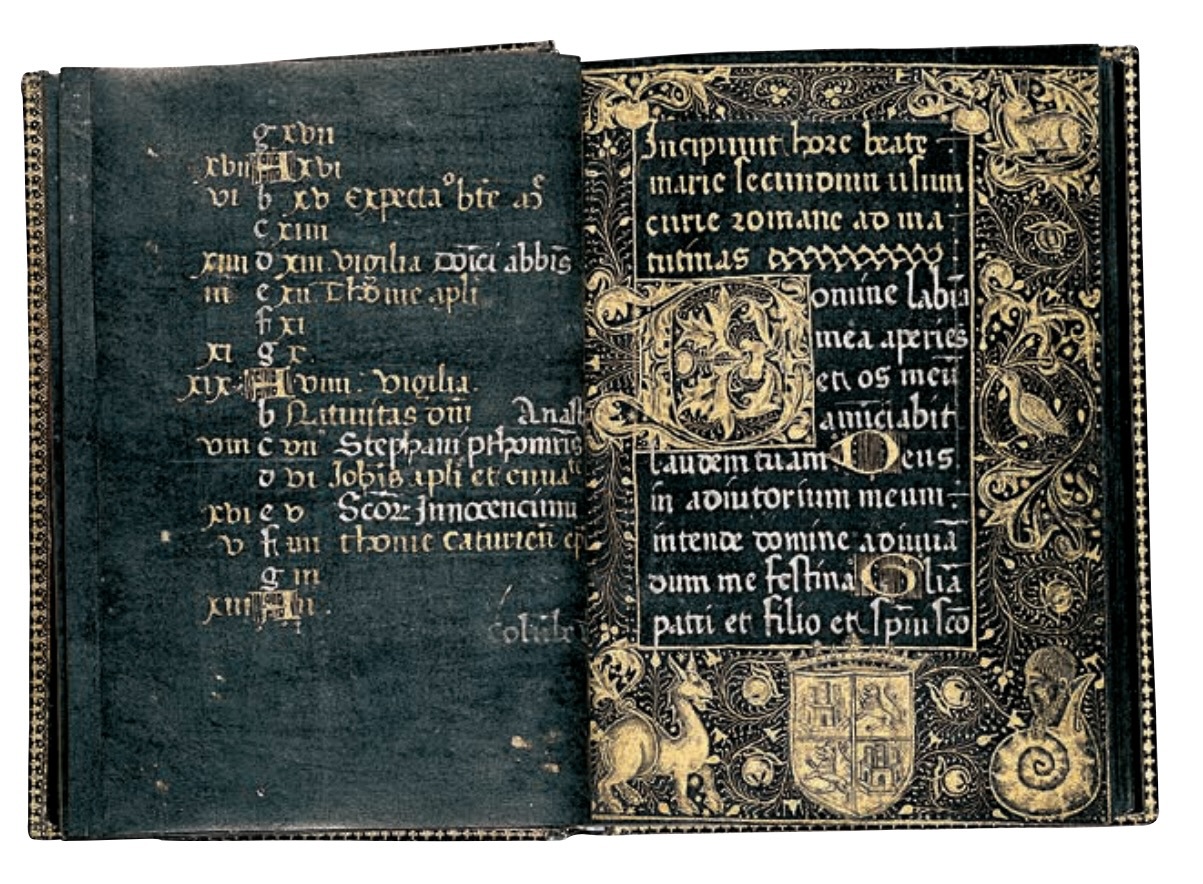 g xvii
xvii A xvi
vi b xv Expectaº bte
c xiiii
xiiii d xiii vigilia dnici abbis
iii e xii Thome apli
f xi
xi g x.
xix A viiii. Vigilia.
b Nativitas dni Anast
viii c vii Stephani pthomris
d vi Johis apli et evva
xvi e v Scor Innocencium
v f iiii thome caturien ep
g iii
xiii A ii.
Incipiunt hore beate
marie secundum usum
curie romane ad ma
tutinas
Domine labia
mea aperies
et os meū
anūciabit
laudem tuam Deus
in adiutorium meum
intende domine adiuuā
dum me festina Gliā
patri et filio et spiu sco